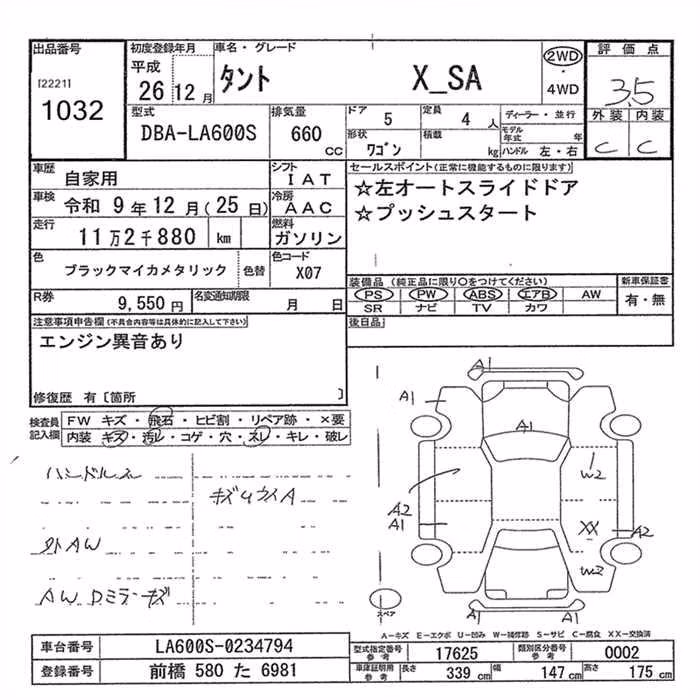 出品番号
[2221]
1032
初度登録年月
平成
26 12 月
車名・グレード
タント X_SA
2WD
・
4WD
評価点
3.5
外装 内装
C C
型式
DBA-LA600S
排気量
660
CC
ドア 5
定員 4 人
形状 ワゴン
積載 kg
ディーラー・並行
モデル年式 年
ハンドル 左・右
車歴 自家用
シフト IAT
車検 令和 9 年 12 月 (25 日)
冷房 AAC
走行 11万2千880 km
燃料 ガソリン
色 ブラックマイカメタリック 色替
色コード X07
R券 9,550 円
名変通知期限 月 日
セールスポイント(正常に機能するものに限ります)
☆左オートスライドドア
☆プッシュスタート
装備品 (純正品に限り○をつけてください)
PS PW ABS エアB AW
SR ナビ TV カワ
新車保証書
有・無
後日品
注意事項申告欄(不具合内容等は具体的に記入して下さい)
エンジン異音あり
修復歴 有[箇所 ]
検査員記入欄
FW キズ・飛石・ヒビ割・リペア跡・×要
内装・キズ・汚レ・コゲ・穴・スレ・キレ・破レ
ハンドルスレ
外AW
AW Dミラーキズ
A1
A1
A1
A2
A1
W2
XX
A2
W2
A1
A1
スペア
A-キズ E-エクボ U-凹み W-補修跡 S-サビ C-腐食 XX-交換済
車台番号 LA600S-0234794
登録番号 前橋 580 た 6981
型式指定番号 参考 17625
類別区分番号 参考 0002
車庫証明用 参考 長さ 339 cm 幅 147 cm 高さ 175 cm